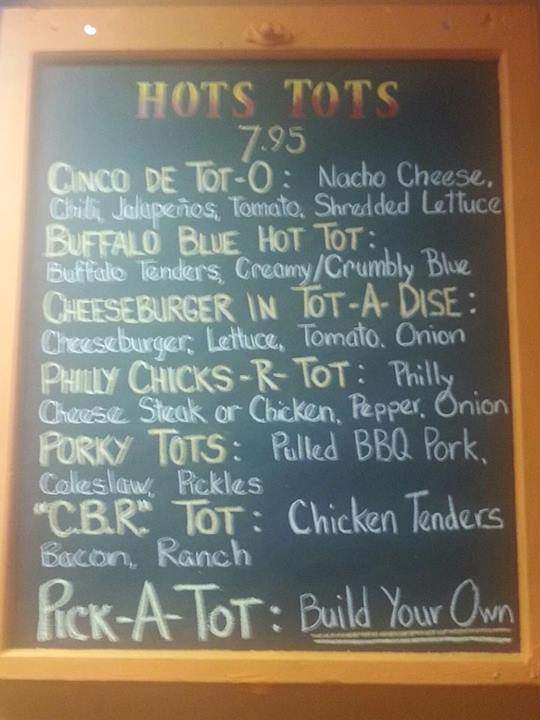 HOTS TOTS
7.95
CINCO DE TOT-O: Nacho Cheese,
Chili, Jalapeños, Tomato, Shredded Lettuce
BUFFALO BLUE HOT TOT:
Buffalo Tenders, Creamy/Crumbly Blue
CHEESEBURGER IN TOT-A-DISE:
Cheeseburger, Lettuce, Tomato, Onion
PHILLY CHICKS-R-TOT: Philly
Cheese Steak or Chicken, Pepper, Onion
PORKY TOTS: Pulled BBQ Pork,
Coleslaw, Pickles
"C.B.R." TOT: Chicken Tenders
Bacon, Ranch
PICK-A-TOT: Build Your Own